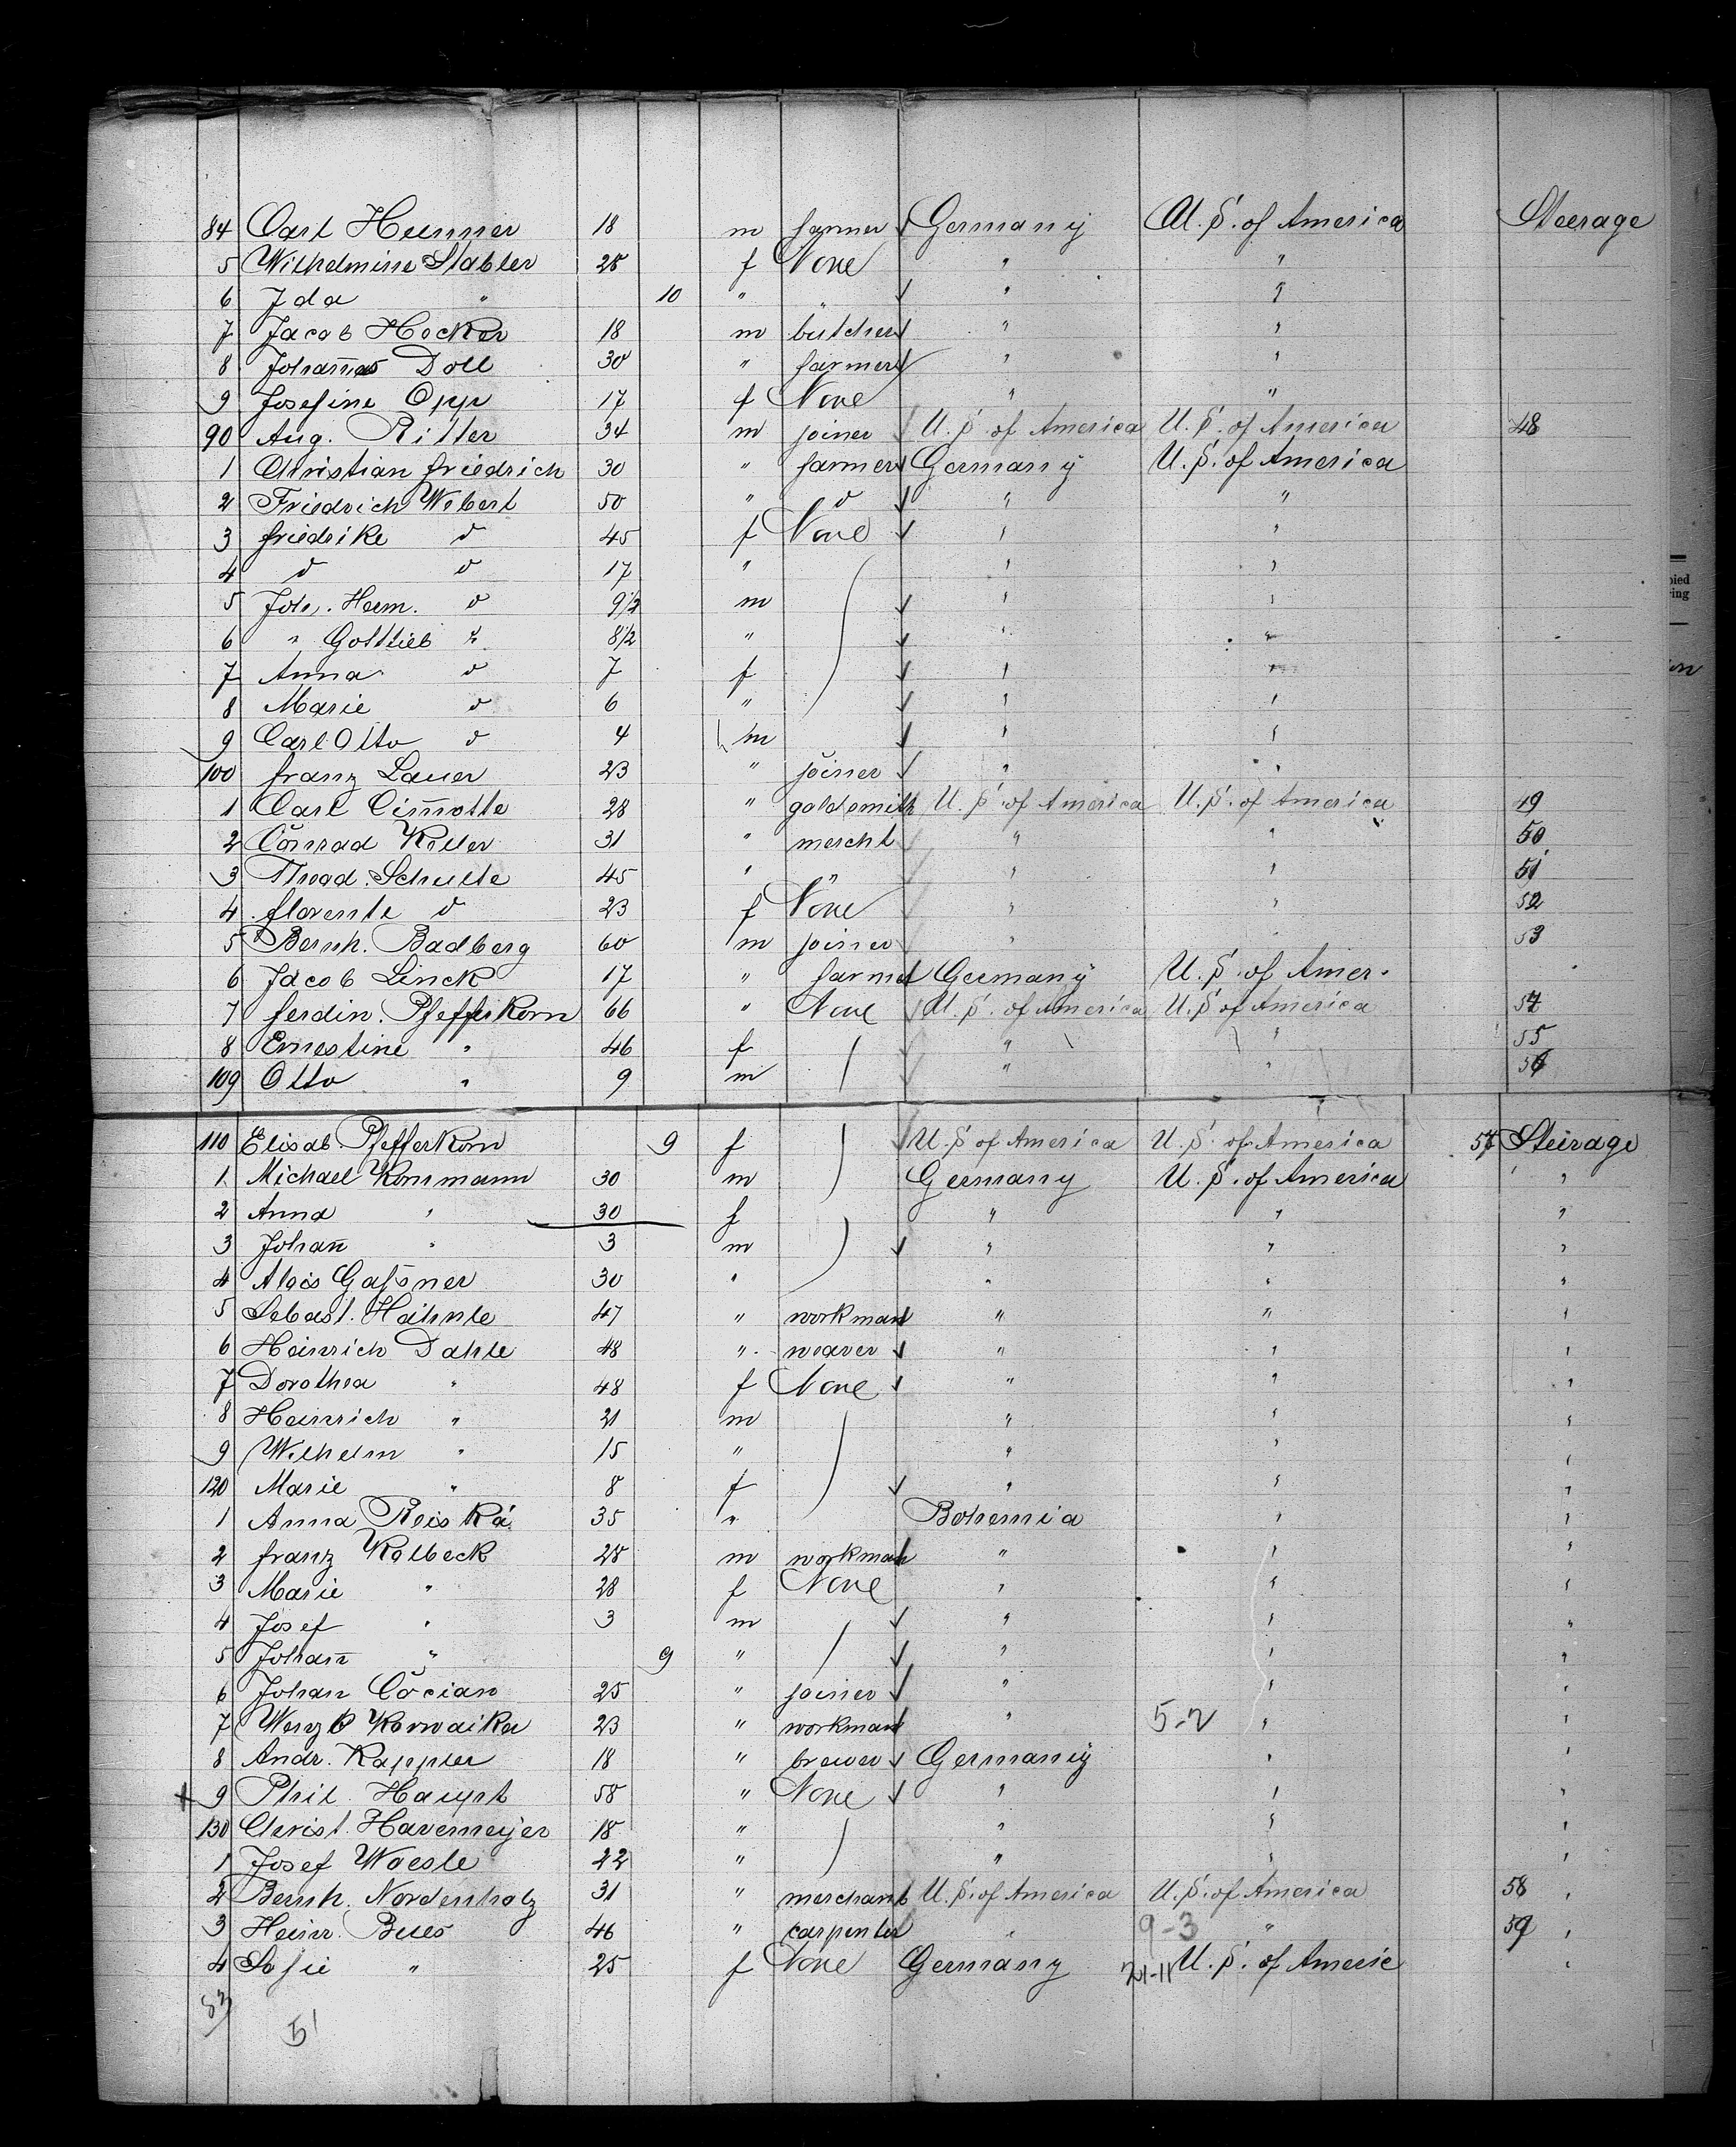 84 Carl Hemmer 18 m farmer Germany U.S. of America Steerage
5 Wilhelmine Stabler 28 f None " "
6 Ida " 10 " " " "
7 Jacob Hocker 18 m butcher " "
8 Johannes Doll 30 " farmer " "
9 Josefine Opp 17 f None " "
90 Aug. Ritter 34 m joiner U.S. of America U.S. of America 48
1 Christian Friedrich 30 " farmer Germany U.S. of America
2 Friedrich Webert 50 " d " "
3 Friedrike d 45 f None " "
4 d d 17 " " "
5 Joh. Herm. d 9 1/2 m " "
6 " Gottlieb " 8 1/2 " " "
7 Anna d 7 f " "
8 Marie d 6 " " "
9 Carl Otto d 4 m " "
100 Franz Lauer 23 " joiner " "
1 Carl Cim̄otte 28 " goldsmith U.S. of America U.S. of America 49
2 Conrad Keller 31 " mercht " " 50
3 Schulte 45 " " " " 51
4 d 23 f None " " 52
5 Bernh. Badberg 60 m joiner " " 53
6 Jacob Linck 17 " farmer Germany U.S. of Amer.
7 Ferdin. Pfefferkorn 66 " None U.S. of America U.S of America 54
8 Ernestine " 46 f " " 55
109 Otto " 9 m " " 56
110 Elisab. Pfefferkorn 9 f U.S of America U.S. of America 57 Steerage
1 Michael Kornmann 30 m Germany U.S. of America "
2 Anna " 30 f " " "
3 Johan̄ " 3 m " " "
4 Alois Gaßner 30 " " " "
5 Sebast. Hähnle 47 " workman " " "
6 Heinrich Dahle 48 " weaver " " "
7 Dorothea " 48 f None " " "
8 Heinrich " 21 m " " "
9 Wilhelm " 15 " " " "
120 Marie " 8 f " " "
1 Anna Reiská 35 " Bohemia " "
2 Franz Kolbeck 28 m workman " " "
3 Marie " 28 f None " " "
4 Josef " 3 m " " "
5 Johan̄ " 9 " " " "
6 Johan Cocian 25 " joiner " " "
7 23 " workman " 5-2 " "
8 Andr. Kappler 18 " brewer Germany " "
9 Phil. Haupt 58 " None " " "
130 Christ. Havemeyer 18 " " " "
1 Josef Woesle 22 " " " "
2 Bernh. Nordenholz 31 " merchant U.S. of America U.S. of America 58 "
3 Heinr. Bues 46 " carpenter " 9-3 " 59 "
4 Sofie " 25 f None Germany 21-11 U.S. of Americ "
51